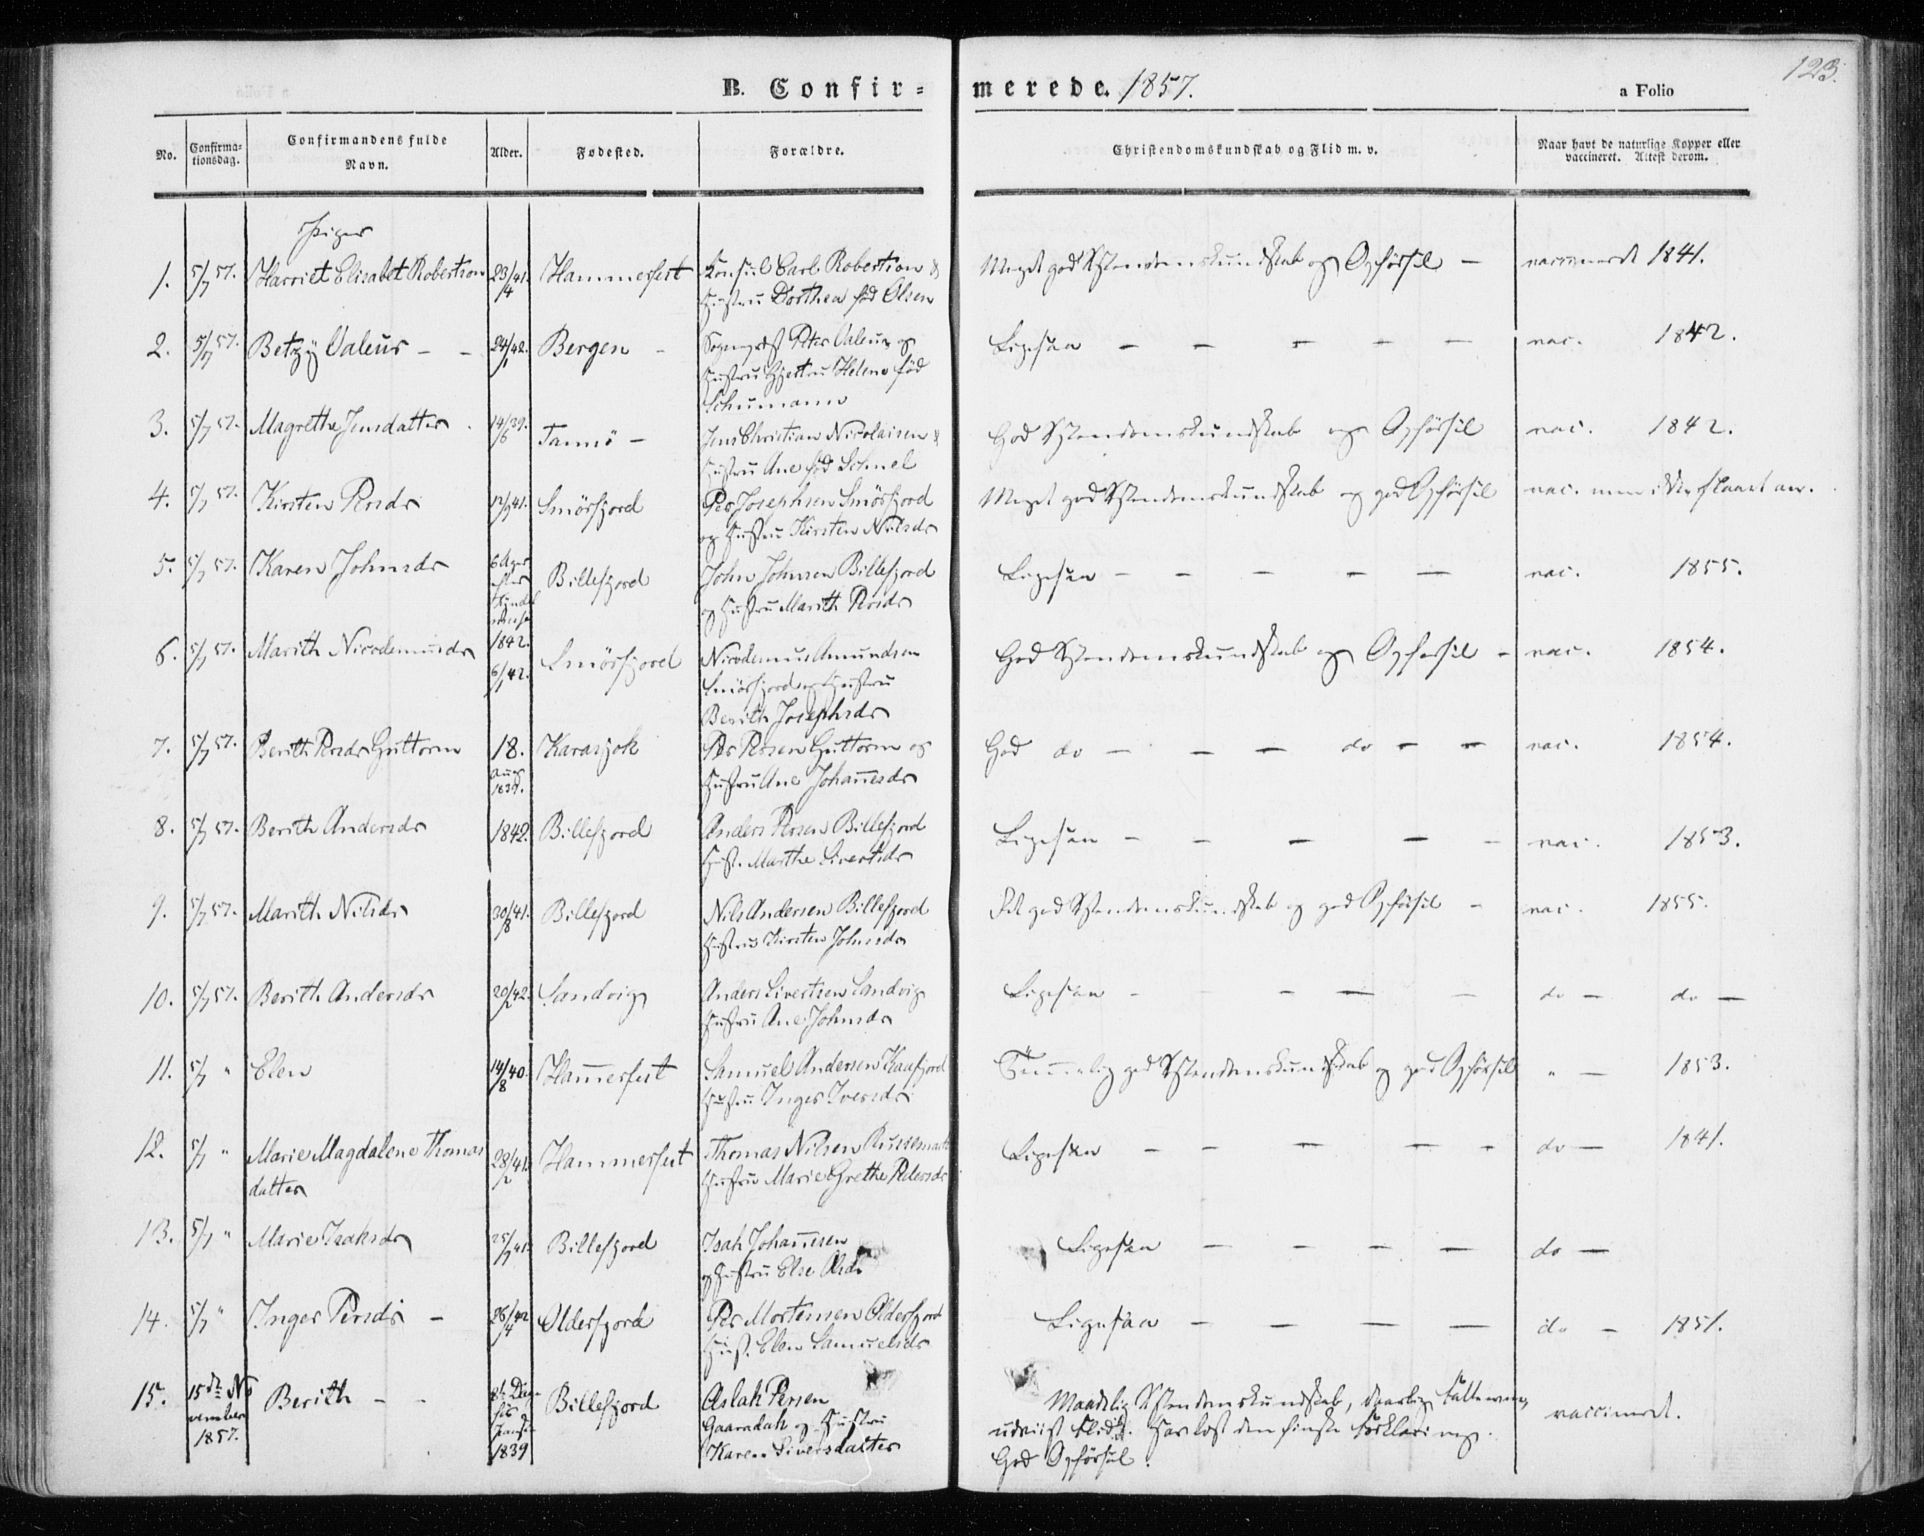 123.
B. Confirmerede. 1857.
a Folio
No. Confirmationsdag. Confirmandens fulde Navn. Alder. Fødested. Forældre. Christendomskundskab og Flid m. v. Naar havt de naturlige Kopper eller vaccineret. Attest derom.
Piger
1. 5/7 57. Harriet Elisabet Robertson 23/4 41. Hammerfest Konsul Carl Robertson & Meget god Xstendomskundskab og Opførsel — vaccineret 1841.
Hustru Dorthea fød Olsen
2. 5/7 57. Betzÿ Valeur — — 24/1 42. Bergen — Sognepræst Peter Valeur og Ligesaa — — — — — — vac. 1842.
Hustru Helene fød
Schumann
3. 5/7 57. Magrethe Jensdatter 14/6 39. Tamsö — Jens Christian Nicolaisen & God Xstendomskundskab og Opførsel vac. 1842.
Hustru Ane fød
4. 5/7 57. Kirsten Persdr 41. Smörfjord Per Josephsen Smörfjord Meget god Xstendomskundskab og god Opførsel vac. men ikke slaaet an.
og Hustru Kirsten Nilsdr
5. 5/7 57. Karen Johnsdr 6 Billefjord John Johnsen Billefjord Ligesaa — — — — — vac. 1855.
og Hustru Marith Persdr
1842.
6. 5/7 57. Marith Nicodemusdr 6/1 42. Smörfjord Nicodemus Amundsen God Xstendomskundskab og Opførsel — vac. 1854.
Smörfjord og Hustru
Berith Josephsdr
7. 5/7 57. Berith Persdr Guttorm 18. Karasjok Per Persen Guttorm og God do — — — do — — vac. 1854.
Hustru Ane Johannesdr
8. 5/7 57. Berith Andersdr 1842. Billefjord Anders Persen Billefjord Ligesaa — — — — — vac. 1853.
Hust. Marthe Sivertsdr
9. 5/7 57. Marith Nilsdr 30/8 41. Billefjord Nils Andersen Billefjord god Xstendomskundskab og god Opførsel — vac. 1855.
Hustru Kirsten Johnsdr
10. 5/7 57. Berith Andersdr 20/2 42. Sandvig Anders Sivertsen Sandvig Ligesaa — — — — do — do —
Hustru Ane Johnsdr
11. 5/7 " Elen 14/8 40. Hammerfest Samuel Andersen Kaafjord Temmelig god Xstendomskundskab og god Opførsel " — 1853.
Hustru Inger Iversdr
12. 5/7 " Marie Magdalene Thomas 28/2 41. Hammerfest Thomas Nilsen Ligesaa — — — — — do — 1841.
datter Hustru Marie Grethe Petersdr
13. 5/7 " Marie Isaksdr 41. Billefjord Isak Johannesen Ligesaa — — — — do —
og Hustru Else Olsdr
14. 5/7 " Inger Persdr — 26/4 42 Olderfjord Per Mortensen Olderfjord Ligesaa — — — — do — 1851.
Hust. Elen Samuelsdr
15. 15de No Berith — — Billefjord Aslak Persen Maadelig Xstendomskundskab, daarlig vaccineret.
vember Gaaradak og Hustru udviist Flid. Har læst den finske Forklaring.
1857. 1839 Karen Siversdatter God Opførsel.